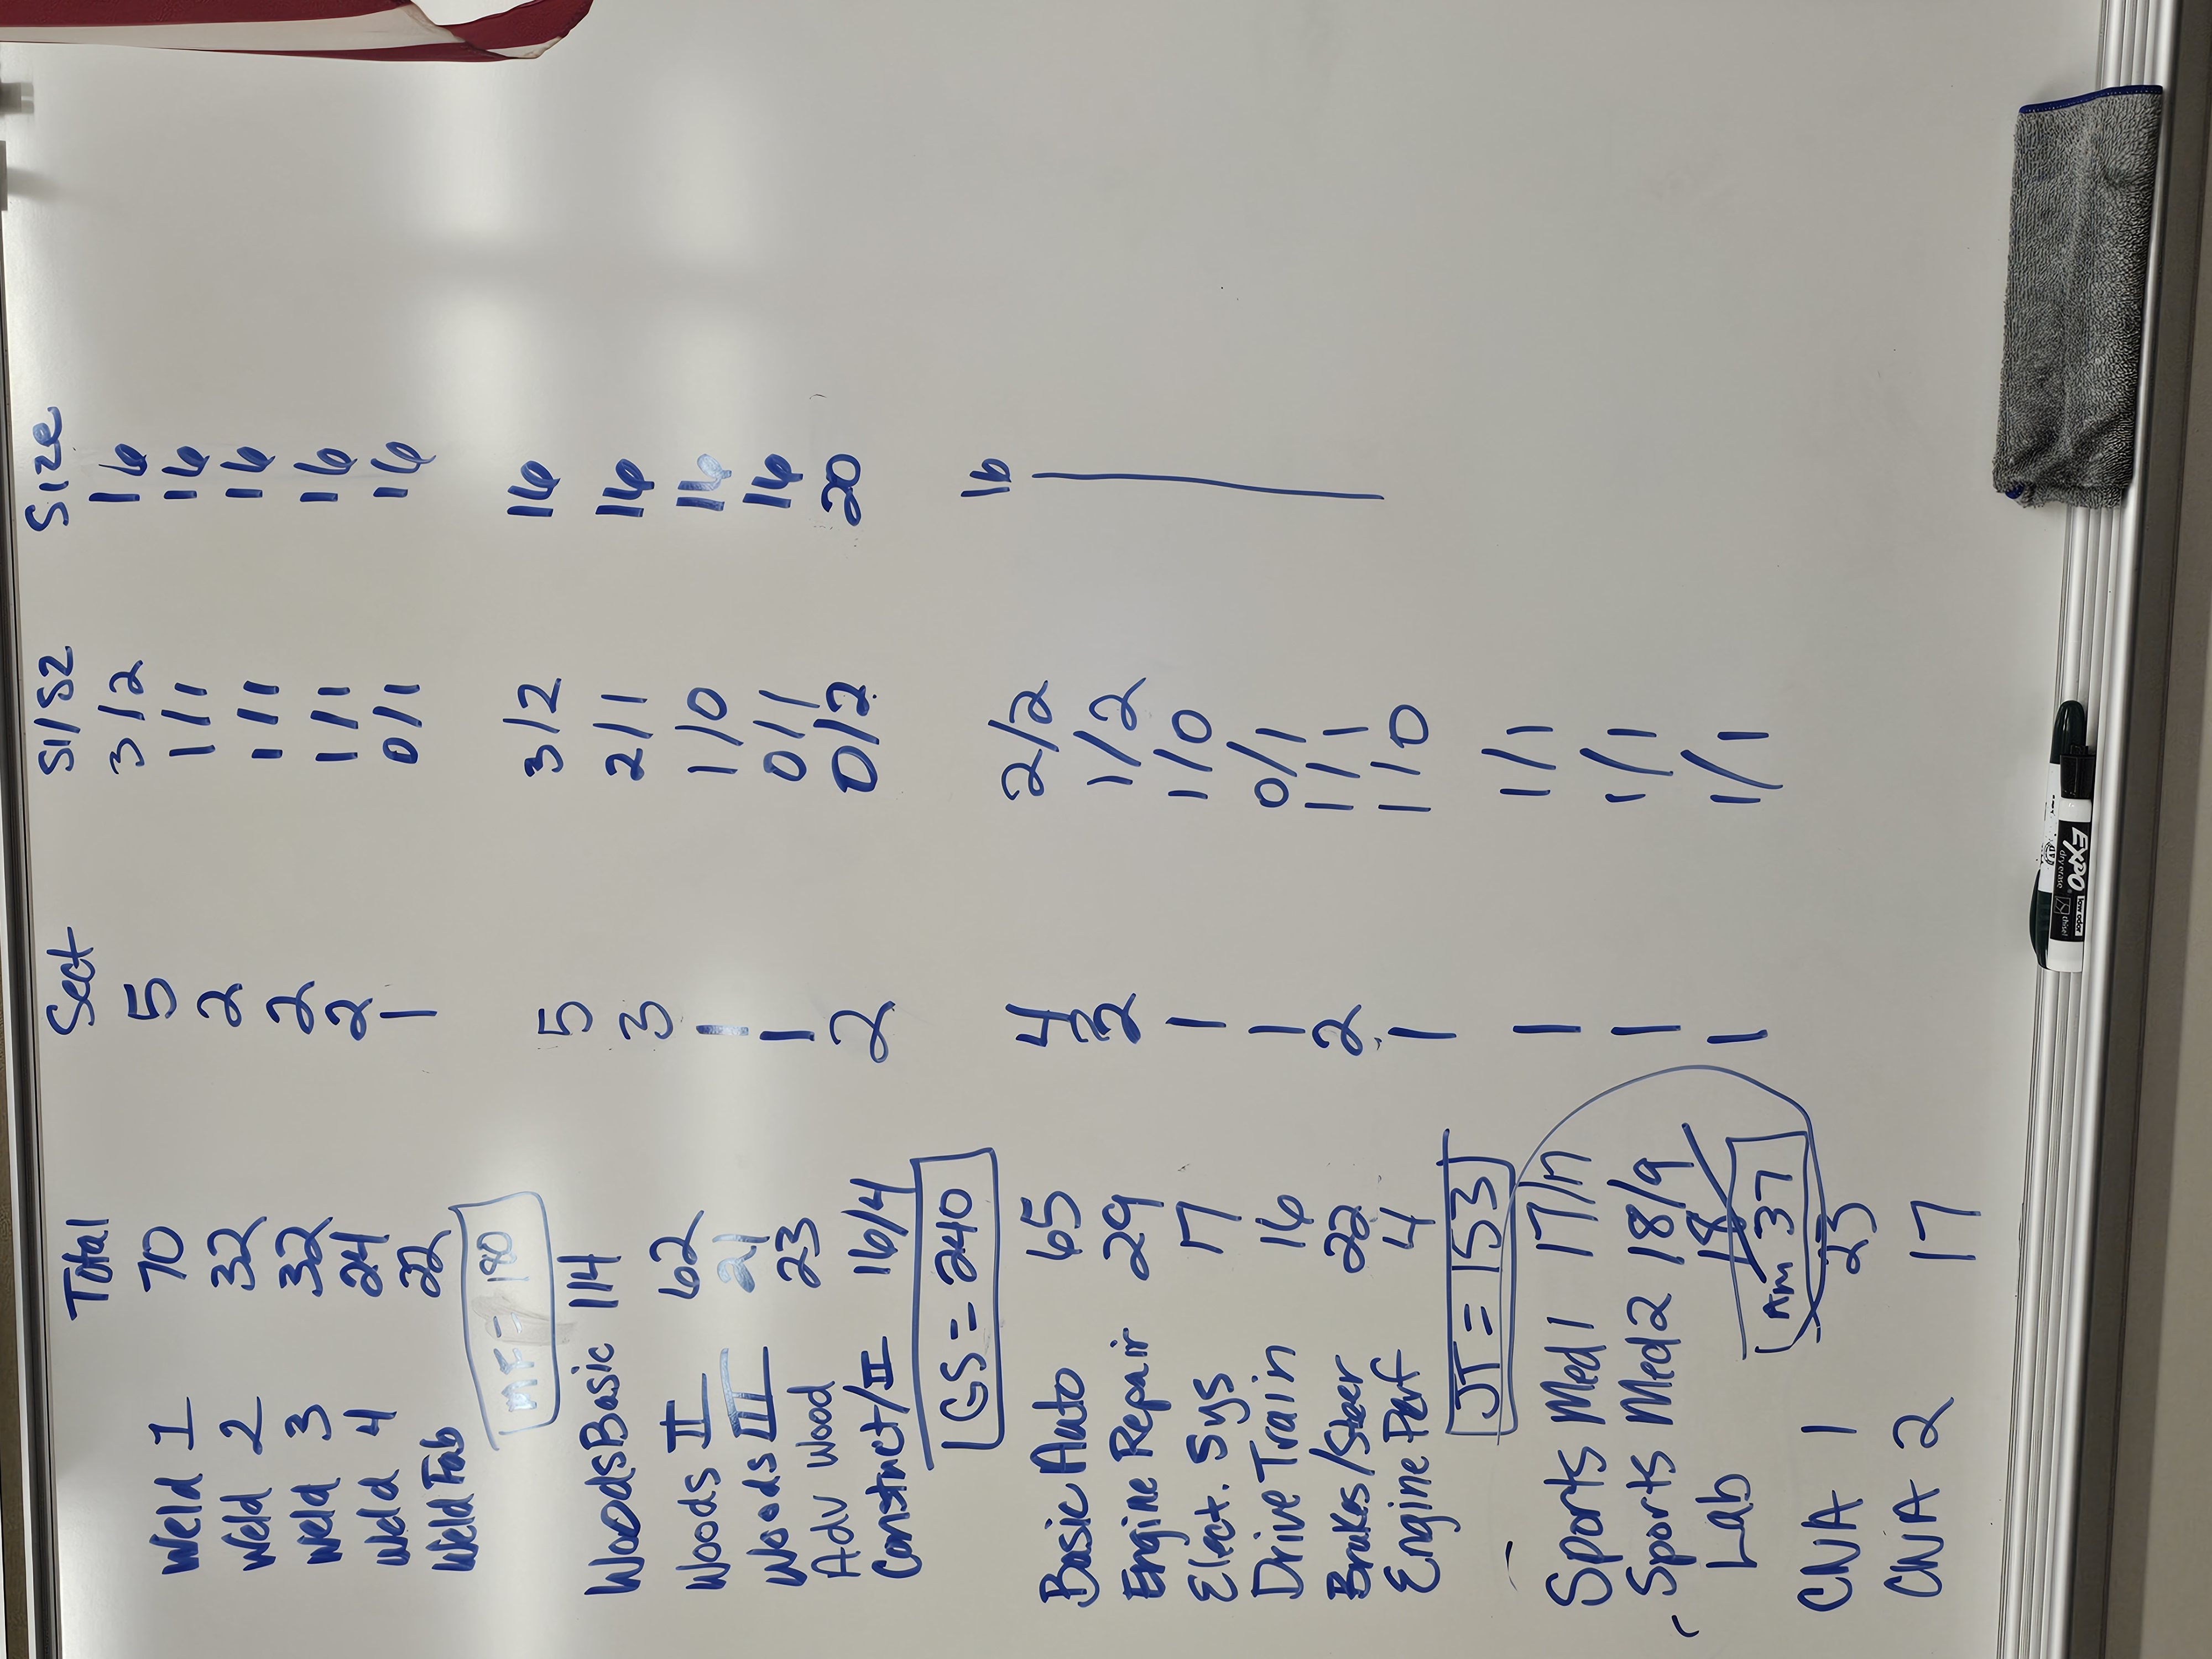 Total Sect S1/S2 Size
Weld 1 70 5 3/2 16
Weld 2 32 2 1/1 16
Weld 3 32 2 1/1 16
Weld 4 24 2 1/1 16
Weld Fab 22 1 0/1 16
MF = 180
Woods Basic 114 5 3/2 16
Woods II 62 3 2/1 16
Woods III 21 1 1/0 16
Adv Wood 23 1 0/1 16
Construct/II 16/4 2 0/2 20
GS = 240
Basic Auto 65 4 2/2 16
Engine Repair 29 2 1/2
Elect. Sys 17 1 1/0
Drive Train 16 1 0/1
Brakes/Steer 22 2 1/1
Engine Perf 4 1 1/0
JT = 153
Sports Med 1 17/ 1 1/1
Sports Med 2 18/9 1 1/1
Lab 18 1 1/1
37
CNA 1 23
CNA 2 17
EXPO
dry erase
low odor
chisel